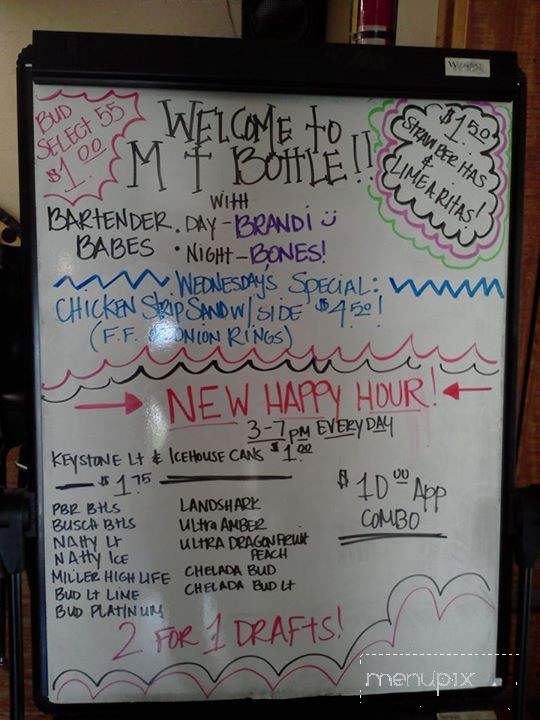 WEDNESDAY
BUD
SELECT 55
$1.00
WELCOME TO
M T BOTTLE!!
$1.50
STRAWBERHAS
&
LIMEARITAS!
WITH
BARTENDER BABES
• DAY - BRANDI
• NIGHT - BONES!
WEDNESDAYS SPECIAL:
CHICKEN STRIP SAND W/ SIDE $4.50!
(F.F. OR ONION RINGS)
NEW HAPPY HOUR!
3-7pm EVERYDAY
KEYSTONE LT & ICEHOUSE CANS $1.00
$1.75
PBR BTLS
BUSCH BTLS
NATTY LT
NATTY ICE
MILLER HIGH LIFE
BUD LT LIME
BUD PLATINUM
LANDSHARK
ULTRA AMBER
ULTRA DRAGONFRUIT
PEACH
CHELADA BUD
CHELADA BUD LT
$10.00 APP
COMBO
2 FOR 1 DRAFTS!
menupix